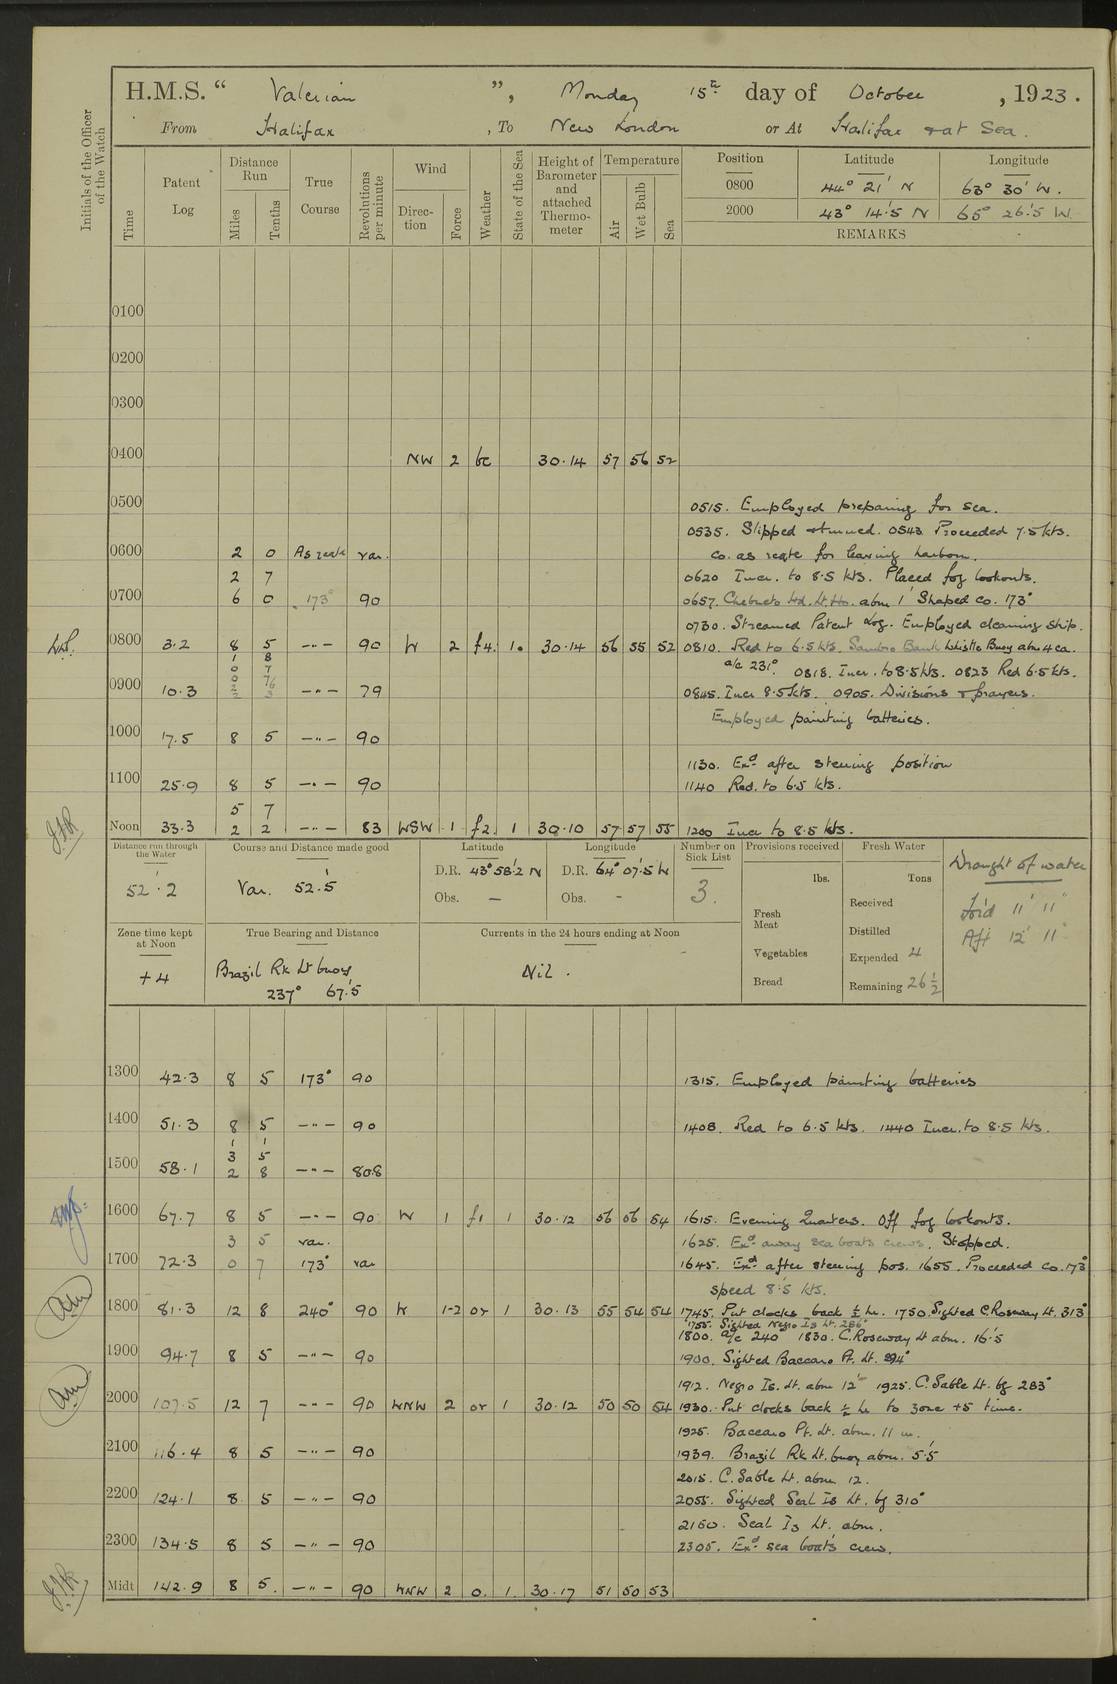 H.M.S. “ Valerian ”, Monday 15th day of October, 1923.
From Halifax, To New London or At Halifax & at Sea.
Initials of the Officer of the Watch
Time
Patent Log
Distance Run
Miles
Tenths
True Course
Revolutions per minute
Wind
Direction
Force
Weather
State of the Sea
Height of Barometer and attached Thermometer
Temperature
Air
Wet Bulb
Sea
Position Latitude Longitude
0800 44° 21' N 63° 30' W.
2000 43° 14'.5 N 65° 26'.5 W
REMARKS
0100
0200
0300
0400 NW 2 bc 30.14 57 56 52
0500
0515. Employed preparing for sea.
0535. Slipped & turned. 0543 Proceeded 7.5 kts.
0600 2 0 As reqte var. Co. as reqte for leaving harbour.
2 7 0620 Incr. to 8.5 kts. Placed fog lookouts.
0700 6 0 173° 90 0657. Chebucto Hd. Lt. Ho. abm 1' Shaped Co. 173°
0730. Streamed Patent Log. Employed cleaning ship.
0800 3.2 8 5 —"— 90 W 2 f4. 1. 30.14 56 55 52 0810. Red to 6.5 kts. Sambro Bank Whistle Buoy abm 4 ca.
1 8
0 7 a/c 231° 0818. Incr. to 8.5 kts. 0823 Red 6.5 kts.
0900 10.3 —"— 79 0845. Incr 8.5 kts. 0905. Divisions & prayers.
Employed painting batteries.
1000 17.5 8 5 —"— 90
1130. Exd after steering position
1100 25.9 8 5 —"— 90 1140 Red. to 6.5 kts.
5 7
Noon 33.3 2 2 —"— 83 WSW 1 f2. 1 30.10 57 57 55 1200 Incr to 8.5 kts.
Distance run through the Water
52'.2
Course and Distance made good
Var. 52'.5
Latitude
D.R. 43° 58'.2 N
Obs. —
Longitude
D.R. 64° 07'.5 W
Obs. -
Number on Sick List
3.
Provisions received
lbs.
Fresh Meat
Vegetables
Bread
Fresh Water
Tons
Received
Distilled
Expended 4
Remaining 26 ½
Draught of water
For'd 11' 11"
Aft 12' 11"
Zone time kept at Noon
+4
True Bearing and Distance
Brazil Rk Lt buoy
237° 67'.5
Currents in the 24 hours ending at Noon
Nil.
1300 42.3 8 5 173° 90 1315. Employed painting batteries
1400 51.3 8 5 —"— 90 1408. Red to 6.5 kts. 1440 Incr. to 8.5 kts.
1 1
3 5
1500 58.1 2 8 —"— 80.8
1600 67.7 8 5 —"— 90 W 1 f1 1 30.12 56 56 54 1615. Evening Quarters. Off fog lookouts.
3 5 var. 1625. Exd away sea boats crews. Stopped.
1700 72.3 0 7 173° var 1645. Exd after steering pos. 1655. Proceeded Co. 173°
speed 8.5 kts.
1800 81.3 12 8 240° 90 W 1-2 or 1 30.13 55 54 54 1745. Put clocks back ½ hr. 1750. Sighted C. Roseway Lt. 313°
1755. Sighted Negro Is Lt. 286°
1800. a/c 240° 1830. C. Roseway Lt abm. 16'.5
1900 94.7 8 5 —"— 90 1900. Sighted Baccaro Pt. Lt. 294°
1912. Negro Is. Lt. abm 12' 1925. C. Sable Lt. bg 283°
2000 107.5 12 7 —"— 90 WNW 2 or 1 30.12 50 50 54 1930. Put clocks back ½ hr to zone +5 time.
1925. Baccaro Pt. Lt. abm. 11 m.
2100 116.4 8 5 —"— 90 1939. Brazil Rk Lt. buoy abm. 5'.5
2015. C. Sable Lt. abm 12.
2200 124.1 8 5 —"— 90 2055. Sighted Seal Is Lt. bg 310°
2150. Seal Is Lt. abm.
2300 134.5 8 5 —"— 90 2305. Exd sea boat's crew.
Midt 142.9 8 5. —"— 90 WNW 2 o. 1. 30.17 51 50 53